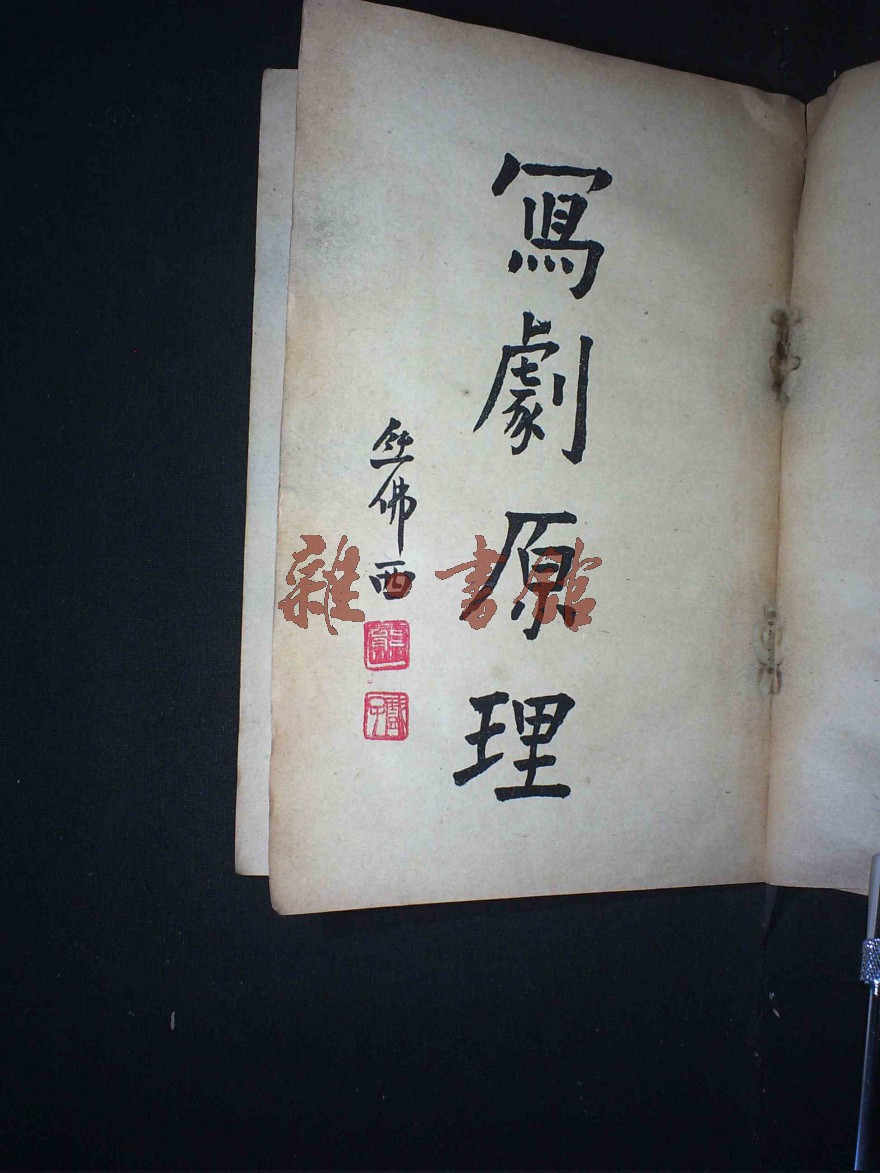 寫劇原理
熊佛西
雜·書館